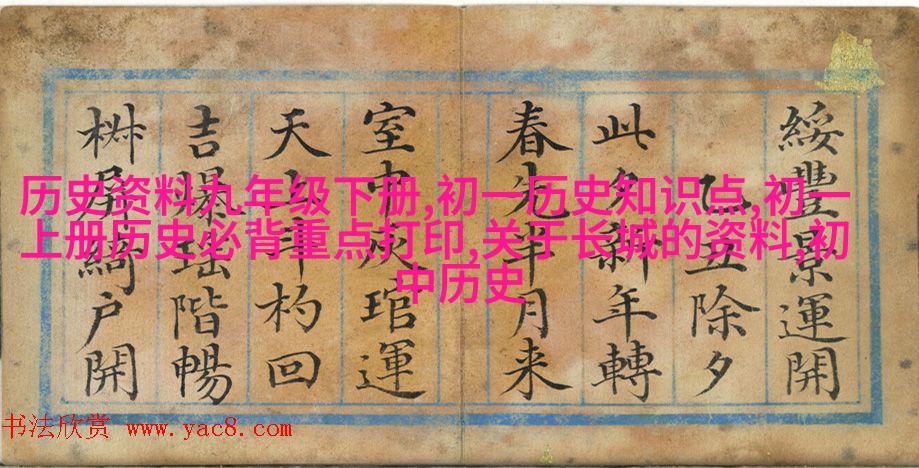 綏豐景運開
乙丑除夕
此夕新年轉
春先半月来
室中灰琯運
天上斗杓回
吉爆瑶階暢
椒屏綺户開
历史资料九年级下册,初一历史知识点,初一
上册历史必背重点打印,关于长城的资料,初
中历史
书法欣赏 www.yac8.com